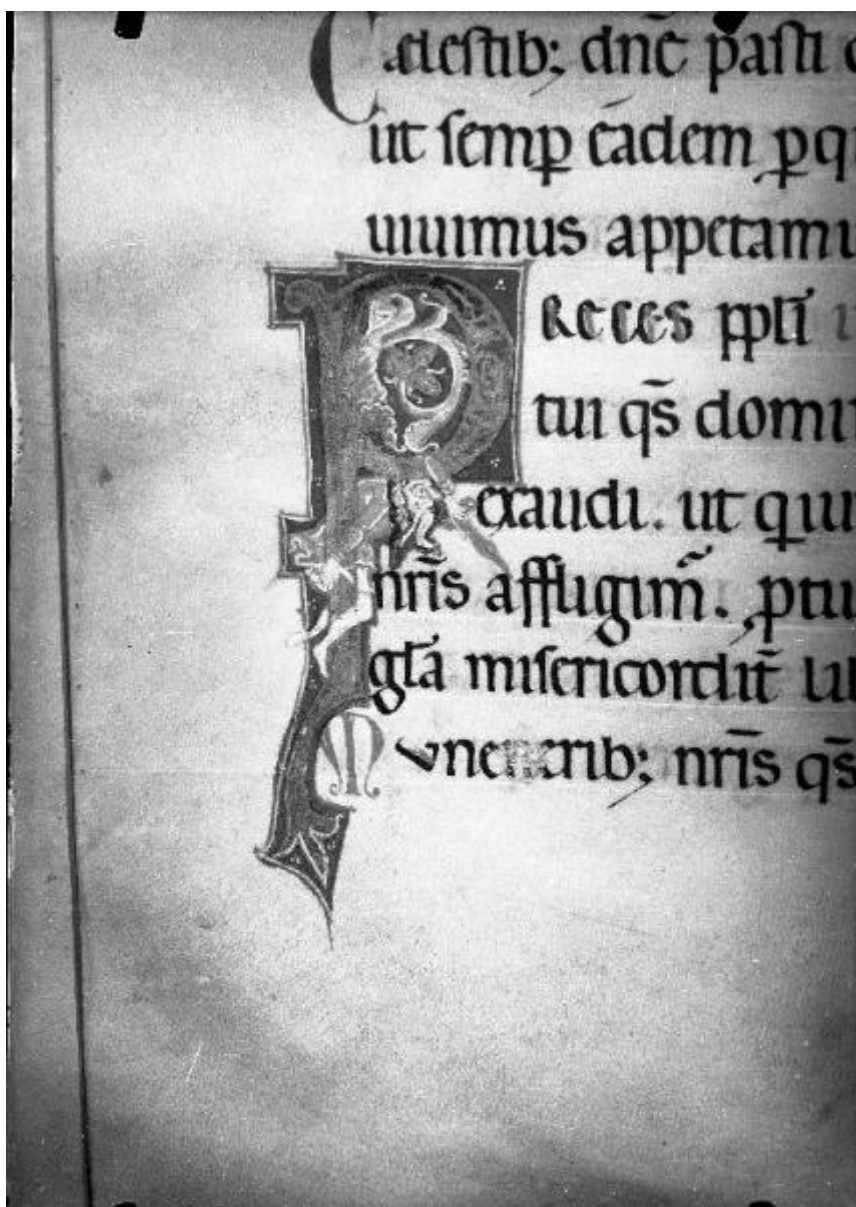 Cælestib; dn̄e pasti
ut semp̱ eadem ꝑq
uiuimus appetamu
PReces pp̄li
tui qs̄ domi
exaudi. ut qui
nr̄is affligim̄. ꝑtu
gl̄a misericordit̄
Muneenerib; nr̄is qs̄